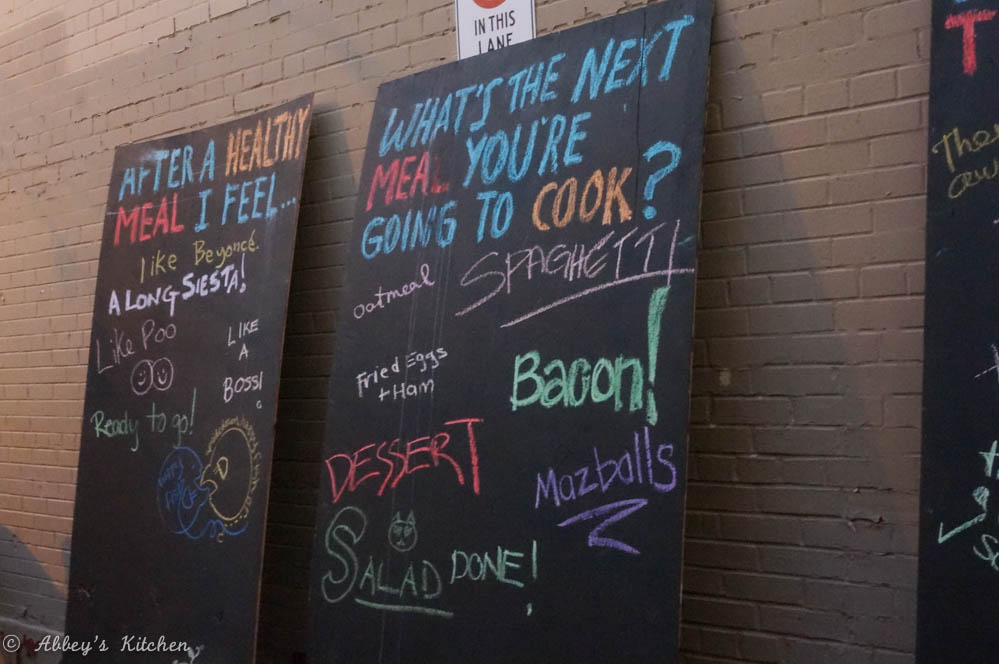 IN THIS
LANE
AFTER A HEALTHY
MEAL I FEEL...
like Beyoncé.
A LONG SIESTA!
Like Poo
LIKE
A
BOSS!
Ready to go!
WHAT'S THE NEXT
MEAL YOU'RE
GOING TO COOK?
oatmeal
SPAGHETTI
Fried Eggs
+ Ham
Bacon!
DESSERT
Mazballs
SALAD
DONE!
T
The
© Abbey's Kitchen